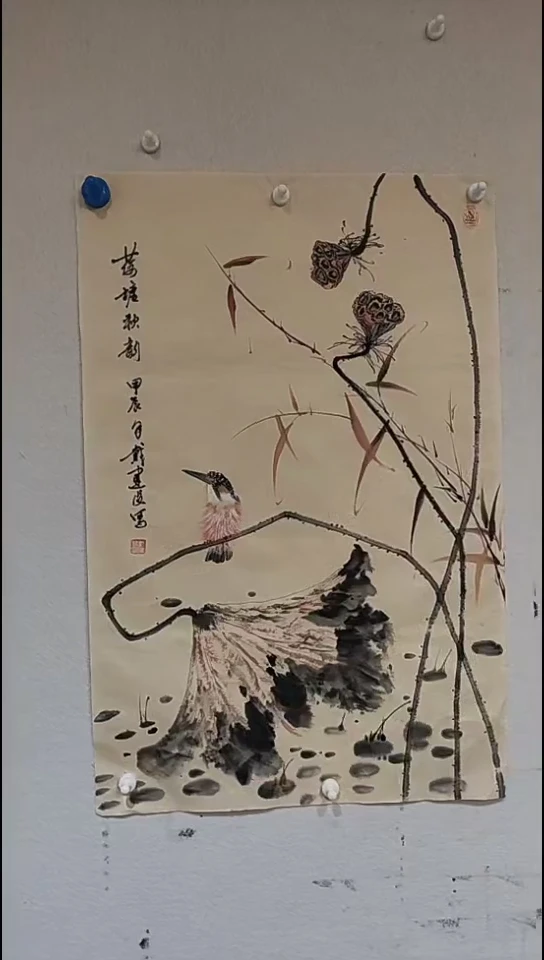 荷塘秋韵
甲辰年戴建国写